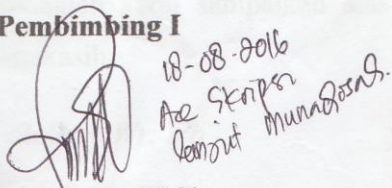 Pembimbing I
18-08-2016
Acc Skripsi
lanjut munaqosas.